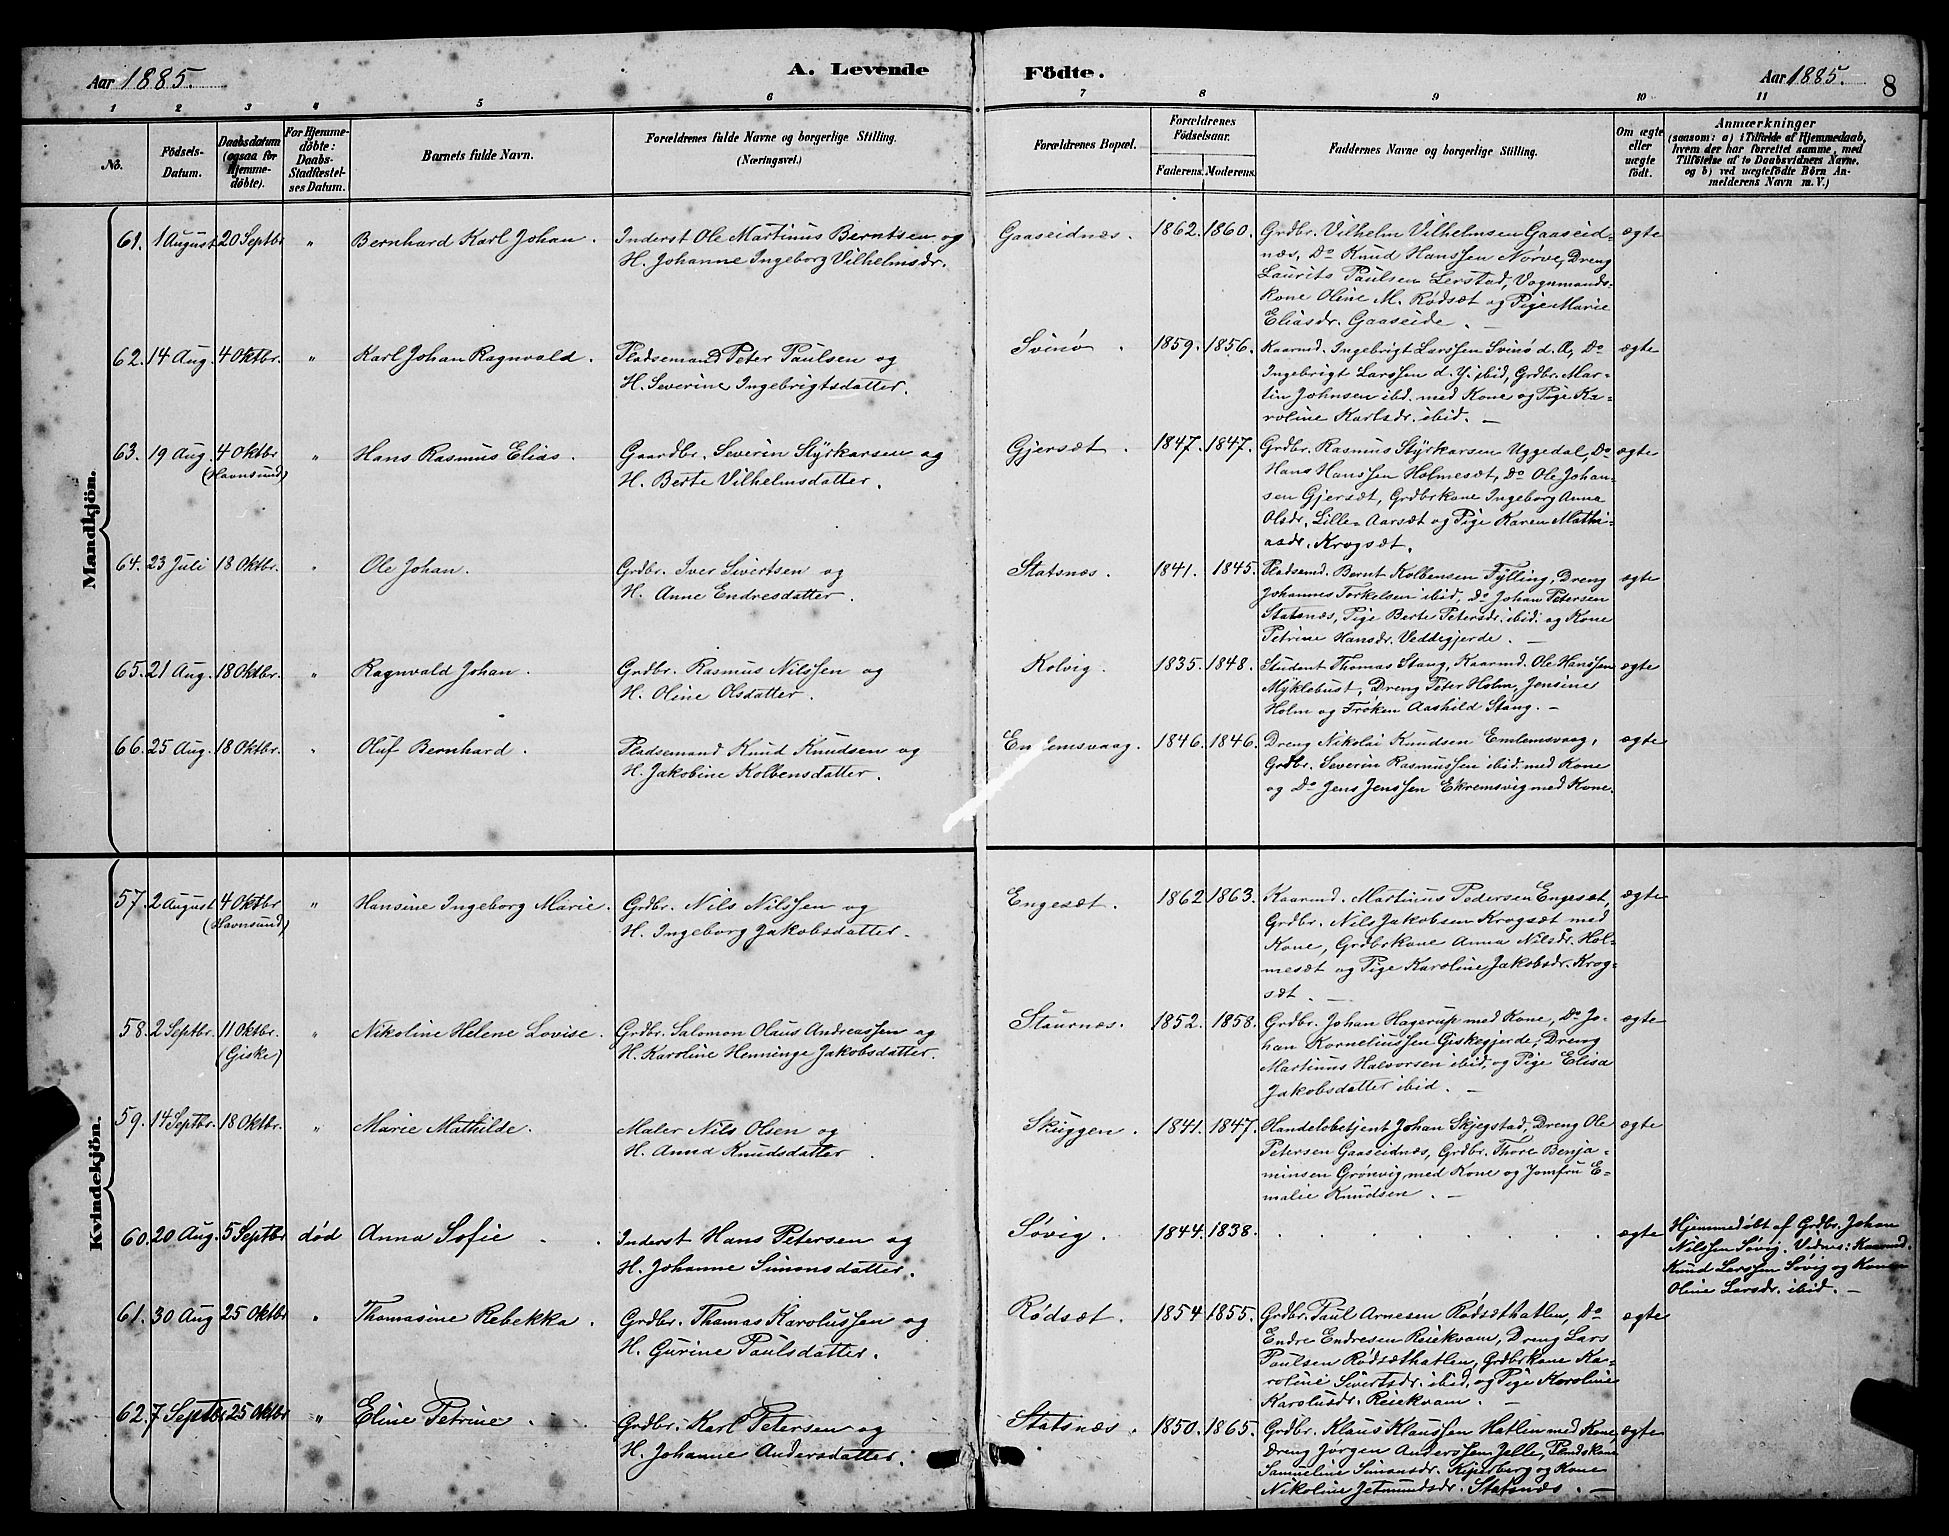 Aar 1885. A. Levende Födte. Aar 1885. 8
1 2 3 4 5 6 7 8 9 10 11
No. Födsels-Datum. Daabsdatum (ogsaa for Hjemme-döbte). For Hjemme-döbte: Daabs-Stadfæstel-ses Datum. Barnets fulde Navn. Forældrenes fulde Navne og borgerlige Stilling. (Næringsvei.) Forældrenes Bopæl. Forældrenes Födselsaar. Faderens. Moderens. Faddernes Navne og borgerlige Stilling. Om ægte eller uægte födt. Anmærkninger
(saasom: a) i Tilfælde af Hjemmedaab,
hvem der har forrettet samme, med
Tilföielse af to Daabsvidners Navne.
og b) ved uægtefödte Börn An-
melderens Navn m. V.)
Mandkjön.
61. 1 August 20 Septbr " Bernhard Karl Johan. Inderst Ole Martinus Berntsen og Gaaseidnæs. 1862. 1860. Grdbr. Vilhelm Vilhelmsen Gaaseid- ægte
H. Johanne Ingeborg Vilhelmsdr. næs, Do Knud Hanssen Nørve, Dreng
Laurits Paulsen Lerstad, Vognmands-
kone Oline M. Rødsæt og Pige Marie
Eliasdr. Gaaseide. —
62. 14 Aug. 4 Oktbr. " Karl Johan Ragnvald. Pladsemand Peter Paulsen og Svinø. 1859. 1856. Kaarmd. Ingebrigt Larssen Svinø d. Æ, Do ægte
H. Severine Ingebrigtsdatter. Ingebrigt Larssen d. Y. ibid, Grdbr. Mar-
tin Johnsen ibid. med Kone og Pige Ka-
roline Karlsdr. ibid. —
63. 19 Aug. 4 Oktbr " Hans Rasmus Elias. Gaardbr. Severin Styrkarsen og Gjersæt. 1847. 1847. Grdbr. Rasmus Styrkarsen Uggedal, Do ægte
(Havnsund) H. Berte Vilhelmsdatter. Hans Hanssen Holmesæt, Do Ole Johan-
sen Gjersæt, Grdbrkone Ingeborg Anna
Olsdr. Lille-Aarsæt og Pige Karen Mathi-
asdr. Krogsæt.
64. 23 Juli 18 Oktbr. " Ole Johan. Grdbr. Iver Sivertsen og Statsnæs. 1841. 1845. Pladsemd. Bernt Kolbensen Fylling, Dreng ægte
H. Anne Endresdatter. Johannes Torkelsen ibid, Do Johan Petersen
Statsnæs, Pige Berte Petersdr. ibid. og Kone
Petrine Hansdr. Veddegjerde. —
65. 21 Aug. 18 Oktbr. " Ragnvald Johan. Grdbr. Rasmus Nilssen og Kolvig. 1835. 1848. Student Thomas Stang, Kaarmd. Ole Hanssen ægte
H. Oline Olsdatter. Myklebust, Dreng Peter Holm, Jensine
Holm og Frøken Aashild Stang. —
66. 25 Aug. 18 Oktbr. " Oluf Bernhard. Pladsemand Knud Knudsen og Emlemsvaag. 1846. 1846. Dreng Nikolai Knudsen Emlemsvaag, ægte
H. Jakobine Kolbensdatter. Grdbr. Severin Rasmussen ibid. med Kone
og Do Jens Jenssen Ekremsvig med Kone.
Kvindekjön.
57. 2 August 4 Oktbr " Hansine Ingeborg Marie. Grdbr. Nils Nilssen og Engesæt. 1862 1863. Kaarmd. Martinus Pedersen Engesæt, ægte
(Havnsund) H. Ingeborg Jakobsdatter. Grdbr. Nils Jakobsen Krogsæt med
Kone, Grdbrkone Anna Nilsdr. Hol-
mesæt og Pige Karoline Jakobsdr. Krog-
sæt. —
58. 2 Septbr. 11 Oktbr. " Nikoline Helene Lovise. Grdbr. Salomon Olaus Andreassen og Staurnæs. 1852. 1858. Grdbr. Johan Hagerup med Kone, Do Jo- ægte
(Giske) H. Karoline Henninge Jakobsdatter. han Korneliussen Giskegjerde, Dreng
Martinus Halvorsen ibid, og Pige Elisa
Jakobsdatter ibid. —
59. 14 Septbr. 18 Oktbr. " Marie Mathilde. Maler Nils Olsen og Skuggen. 1841. 1847. Handelsbetjent Johan Skjegstad, Dreng Ole ægte
H. Anna Knudsdatter. Petersen Gaaseidnæs, Grdbr. Thore Benja-
minsen Grønvig, med Kone og Jomfru E-
malie Knudsen. —
60. 20 Aug. 5 Septbr død Anna Sofie. Inderst Hans Petersen og Søvig. 1844. 1838. ægte Hjemmedøbt af Grdbr. Johan
H. Johanne Simonsdatter. Nilssen Søvig. Vidner: Kaarmd.
Knud Larssen Søvig og Kone
Oline Larsdr. ibid. —
61. 30 Aug 25 Oktbr " Thomasine Rebekka. Grdbr. Thomas Karolussen og Rødsæt. 1854 1855. Grdbr. Paul Arnesen Rødsæthatlen, Do ægte
H. Gurine Paulsdatter. Endre Endresen Reiekvam, Dreng Lars
Paulsen Rødsæthatlen, Grdbrkone Ka-
roline Sivertsdr. ibid, og Pige Karoline
Karolusdr. Reiekvam. —
62. 7 Septbr. 25 Oktbr " Eline Petrine. Grdbr. Karl Petersen og Statsnæs. 1850. 1865. Grdbr. Klaus Klaussen Hatlen med Kone ægte
H. Johanne Andersdatter. Dreng Jørgen Anderssen Jelle, Pladskone
Sammeline Simonsdr. Kiperberg og Kone
Nikoline Jetmundsdr. Statsnæs. —